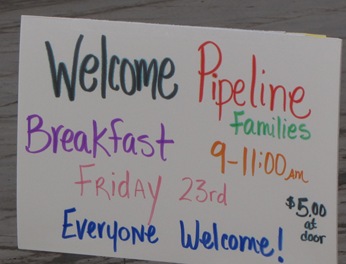 Welcome Pipeline
Families
Breakfast 9-11:00 AM
Friday 23rd
$5.00
at
door
Everyone Welcome!